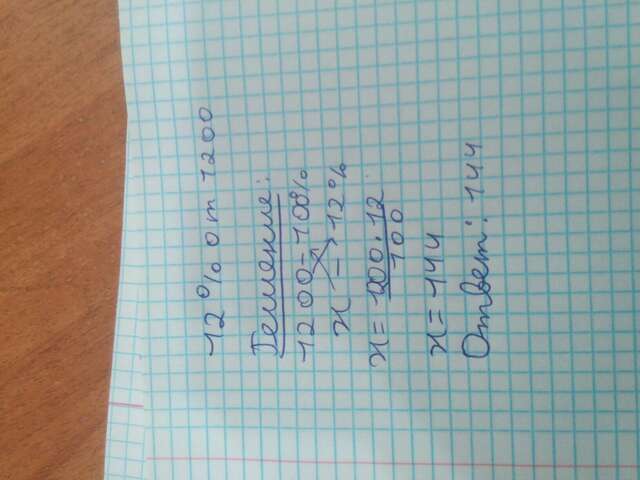 12% от 1200
Решение:
1200 - 100%
x - 12%
x = 1200 · 12
100
x = 144
Ответ: 144